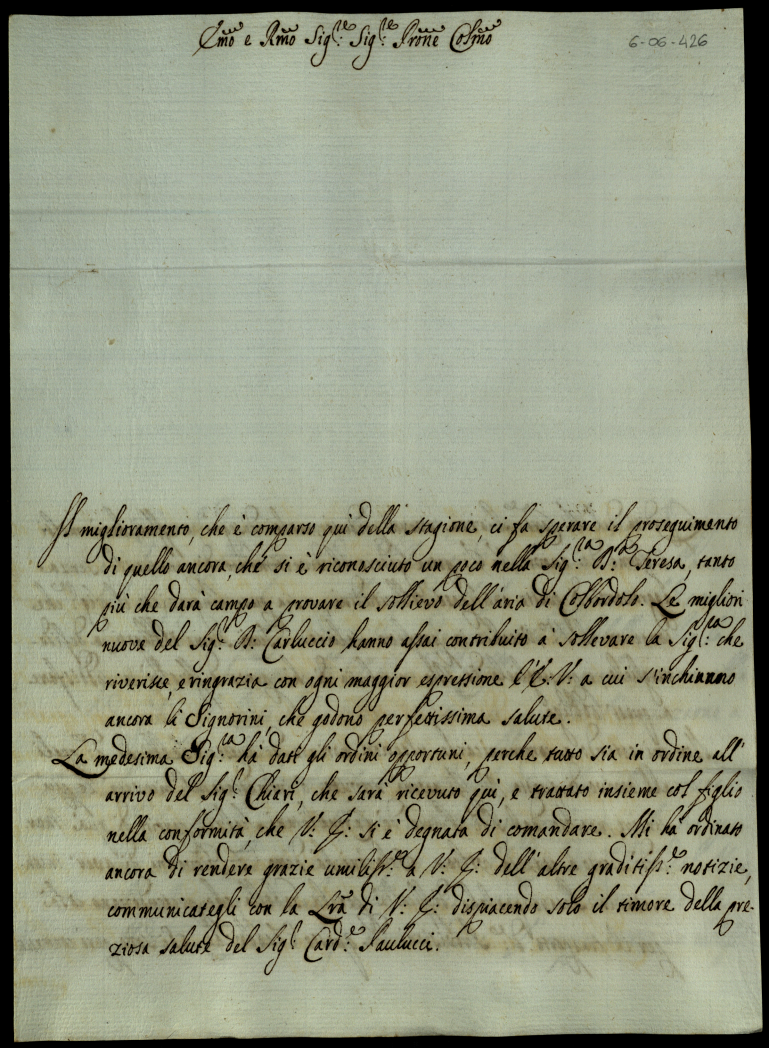 Emo e Rmo Sig:re Sig:re Prone Colmo
6-06-426
Il miglioramento, che è comparso qui della stagione, ci fa sperare il proseguimento
di quello ancora, che si è riconosciuto un poco nella Sig:ra D:a Teresa, tanto
più che darà campo a provare il sollievo dell'aria di Colbordolo. Le migliori
nuove del Sig:r D: Carluccio hanno assai contribuito à sollevare la Sig:ra che
riverisce, e ringrazia con ogni maggior espressione l'E: V: a cui s'inchinano
ancora li Signorini, che godono perfettissima salute.
La medesima Sig:ra hà dati gli ordini opportuni, perche tutto sia in ordine all'
arrivo del Sig:r Chieri, che sarà ricevuto quì, e trattato insieme col figlio
nella conformità, che V: E: si è degnata di comandare. Mi hà ordinato
ancora di rendere grazie umiliss:e a V: E: dell'altre graditiss:e notizie,
communicategli con la Lra di V: E: dispiacendo solo il timore della pre-
ziosa salute del Sig:r Card:e Paulucci.